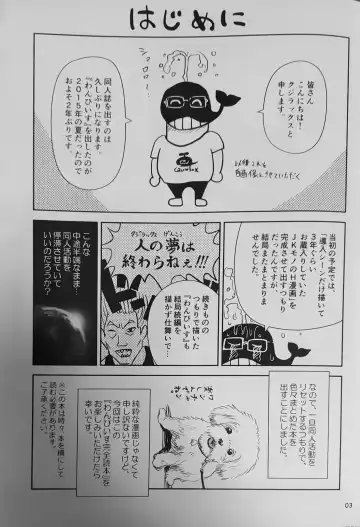 はじめに
皆さん
こんにちは！
クジラックスと
申します。
同人誌を出すのは
久しぶりになります。
『わんぴいす』を出したのが
2015年の夏だったので
およそ2年ぶりです。
当初の予定では、
「導入シーンだけ描いて
3年ぐらい
お蔵入りしていた
JKモノのH漫画を
完成させて出すつもり
だったんですが、
結局またまとまりま
せんでした。
人の夢は
終わらねェ!!!
続きものの
つもりで描いた
『わんぴいす』も
結局続編を
描かず仕舞いで…
こんな
中途半端なまま…
同人活動を
停滞させていて
いいのだろうか？
なので、一旦同人活動を
リセットするつもりで、
色々まとめた本を
出すことにしました。
純粋な漫画じゃなくて
申し訳ないですけど、
今回はこの
『わんぴいす完全読本』を
お楽しみいただけたら
幸いです。
※この本は時々、本を横にして
読む必要があります。
ご了承ください。
03